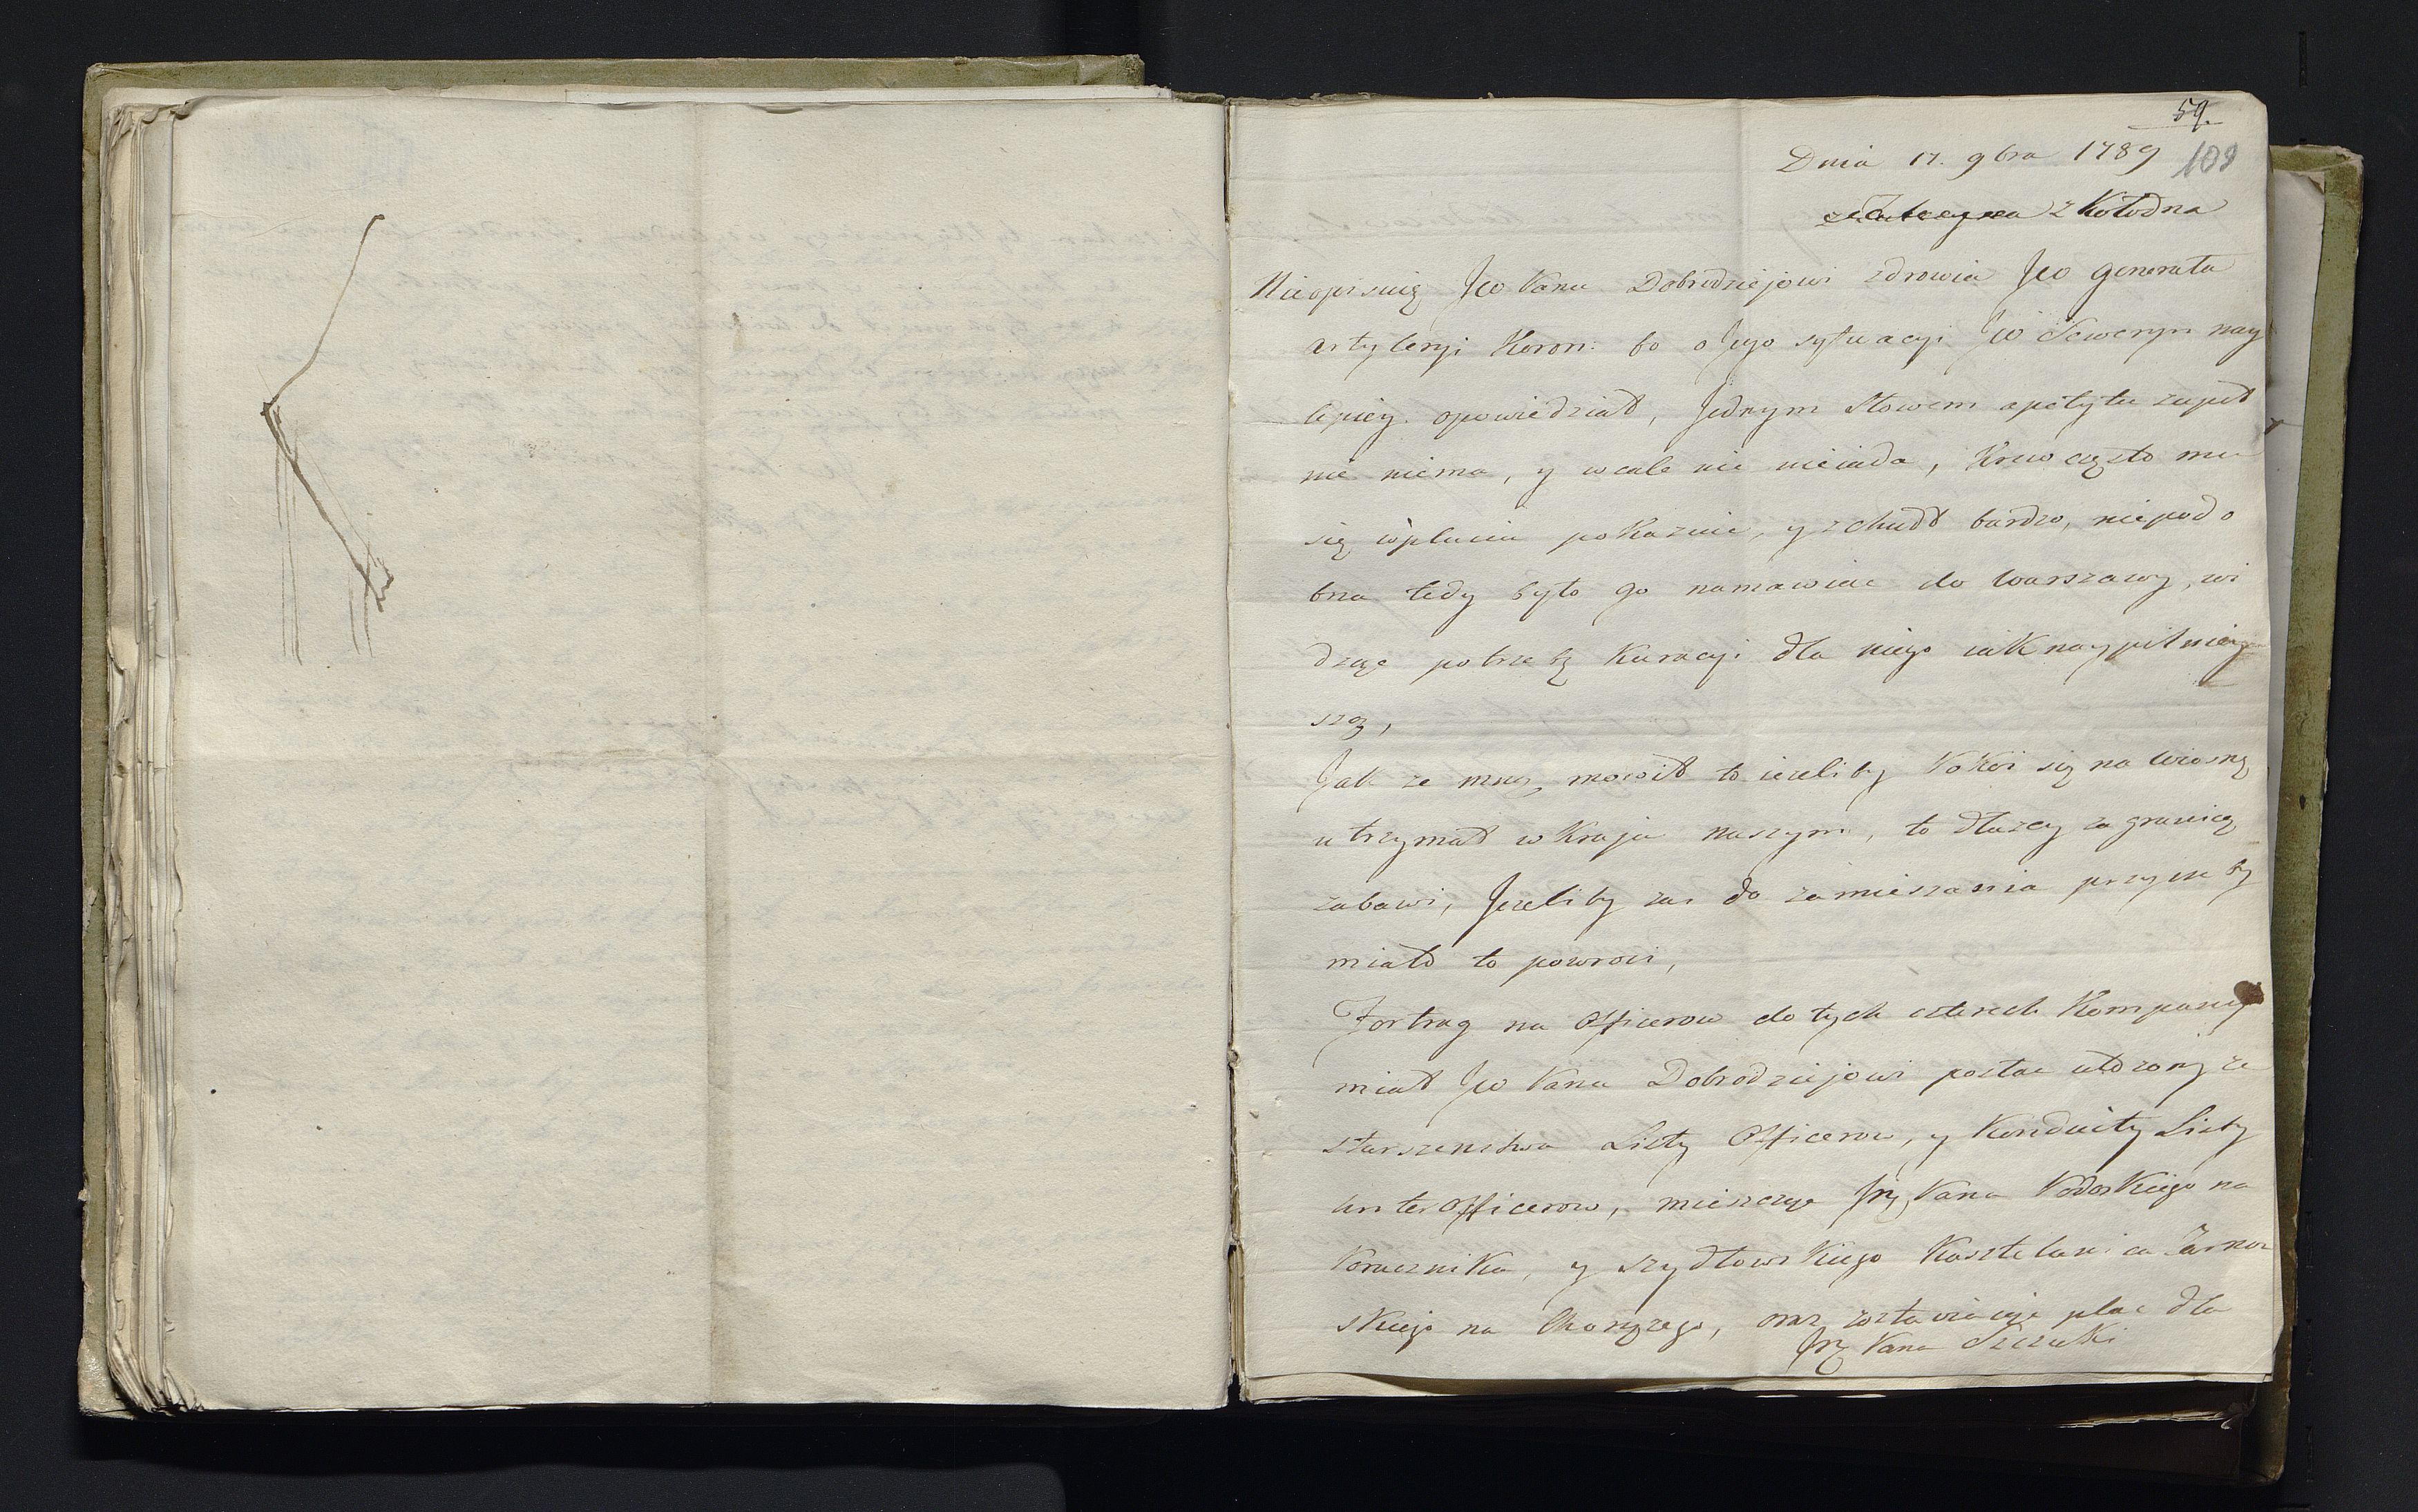 59.
Dnia 17. 9bra 1789 109
z Kołodna
Nieopisuię JW Panu Dobrodziejowi zdrowia JW generała
artyleryi Koron: bo o Jego sytuacyi JW Seweryn nay
lepiey opowiedział, Jednym słowem apetytu zupeł
nie niema, y wcale nie nieiada, Krew często mu
się w pluciu pokazuie, y zchudł bardzo, niepodo
bna tedy było go namawiac do Warszawy, wi
dząc potrzebę Kuracyi dla niego iak naypilniey
szą,
Jak ze mną mowił to ieżeliby Pokoi się na wiosnę
utrzymał w Kraju naszym, to dłużey za granicą
zabawi, Jeżeliby zas do zamieszania przyisc by
miało to powroci,
Fortrag na Officerow do tych czterech Kompanyi
miał JW Panu Dobrodziejowi posłac ułożony ze
starszenstwa Listy Officerow, y Konduity Listy
Unterofficerow, mieszcząc Jmć Pana Podoskiego na
Porucznika, y Szydłowskiego Kasztelanica Żarnow
skiego na Chorążego, oraz zostawiając plac dla
Jmć Pana Szczuki